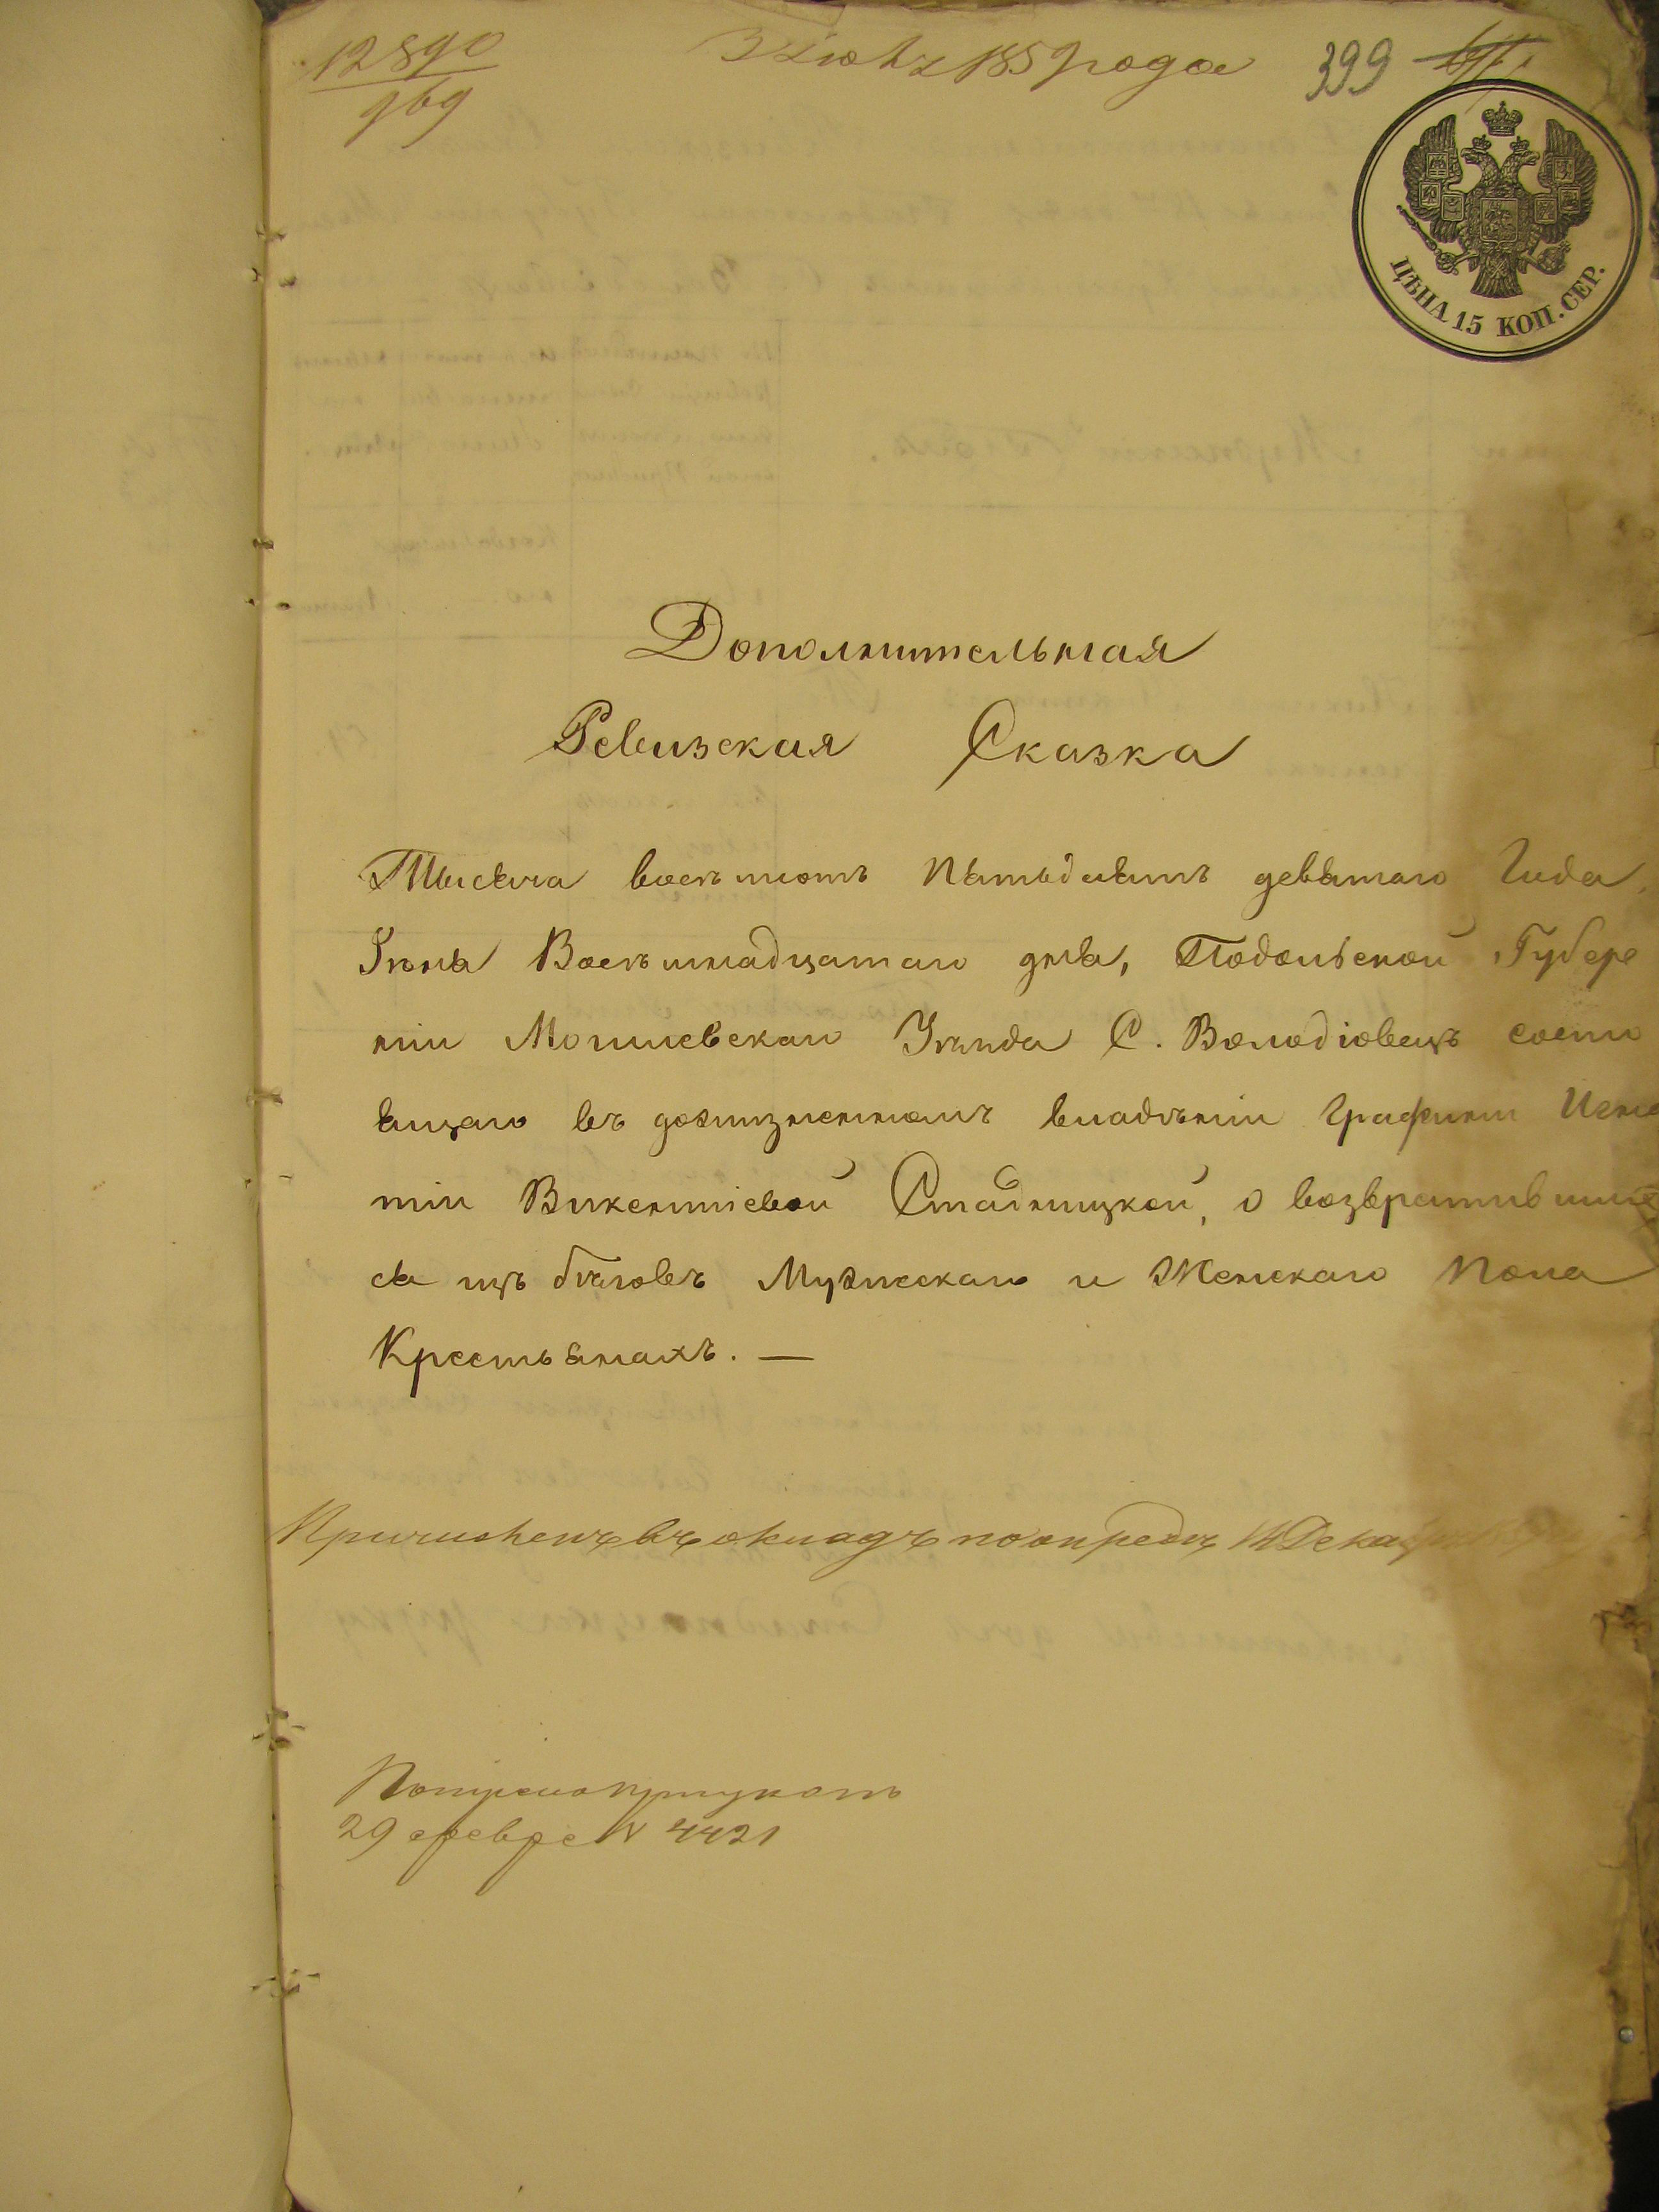 12890
969
3 Іюля 1859 года
399
ЦѢНА 15 КОП. СЕР.
Дополнительная
Ревизская Сказка
Тысяча восемьсотъ пятьдесятъ девятаго Года,
Іюня Восемнадцатаго дня, Подольской Губер
ніи Могилевскаго Уѣзда С. Володіовецъ состо
ящаго въ дожизненномъ владѣніи Графини
Викентіевой Стадницкой, о возвратившихъ
ся изъ бѣговъ Мужескаго и Женскаго Пола
Крестьянахъ. —
Причисленъ въ окладъ по опредѣ 11 Декаб
29 февр N 4421